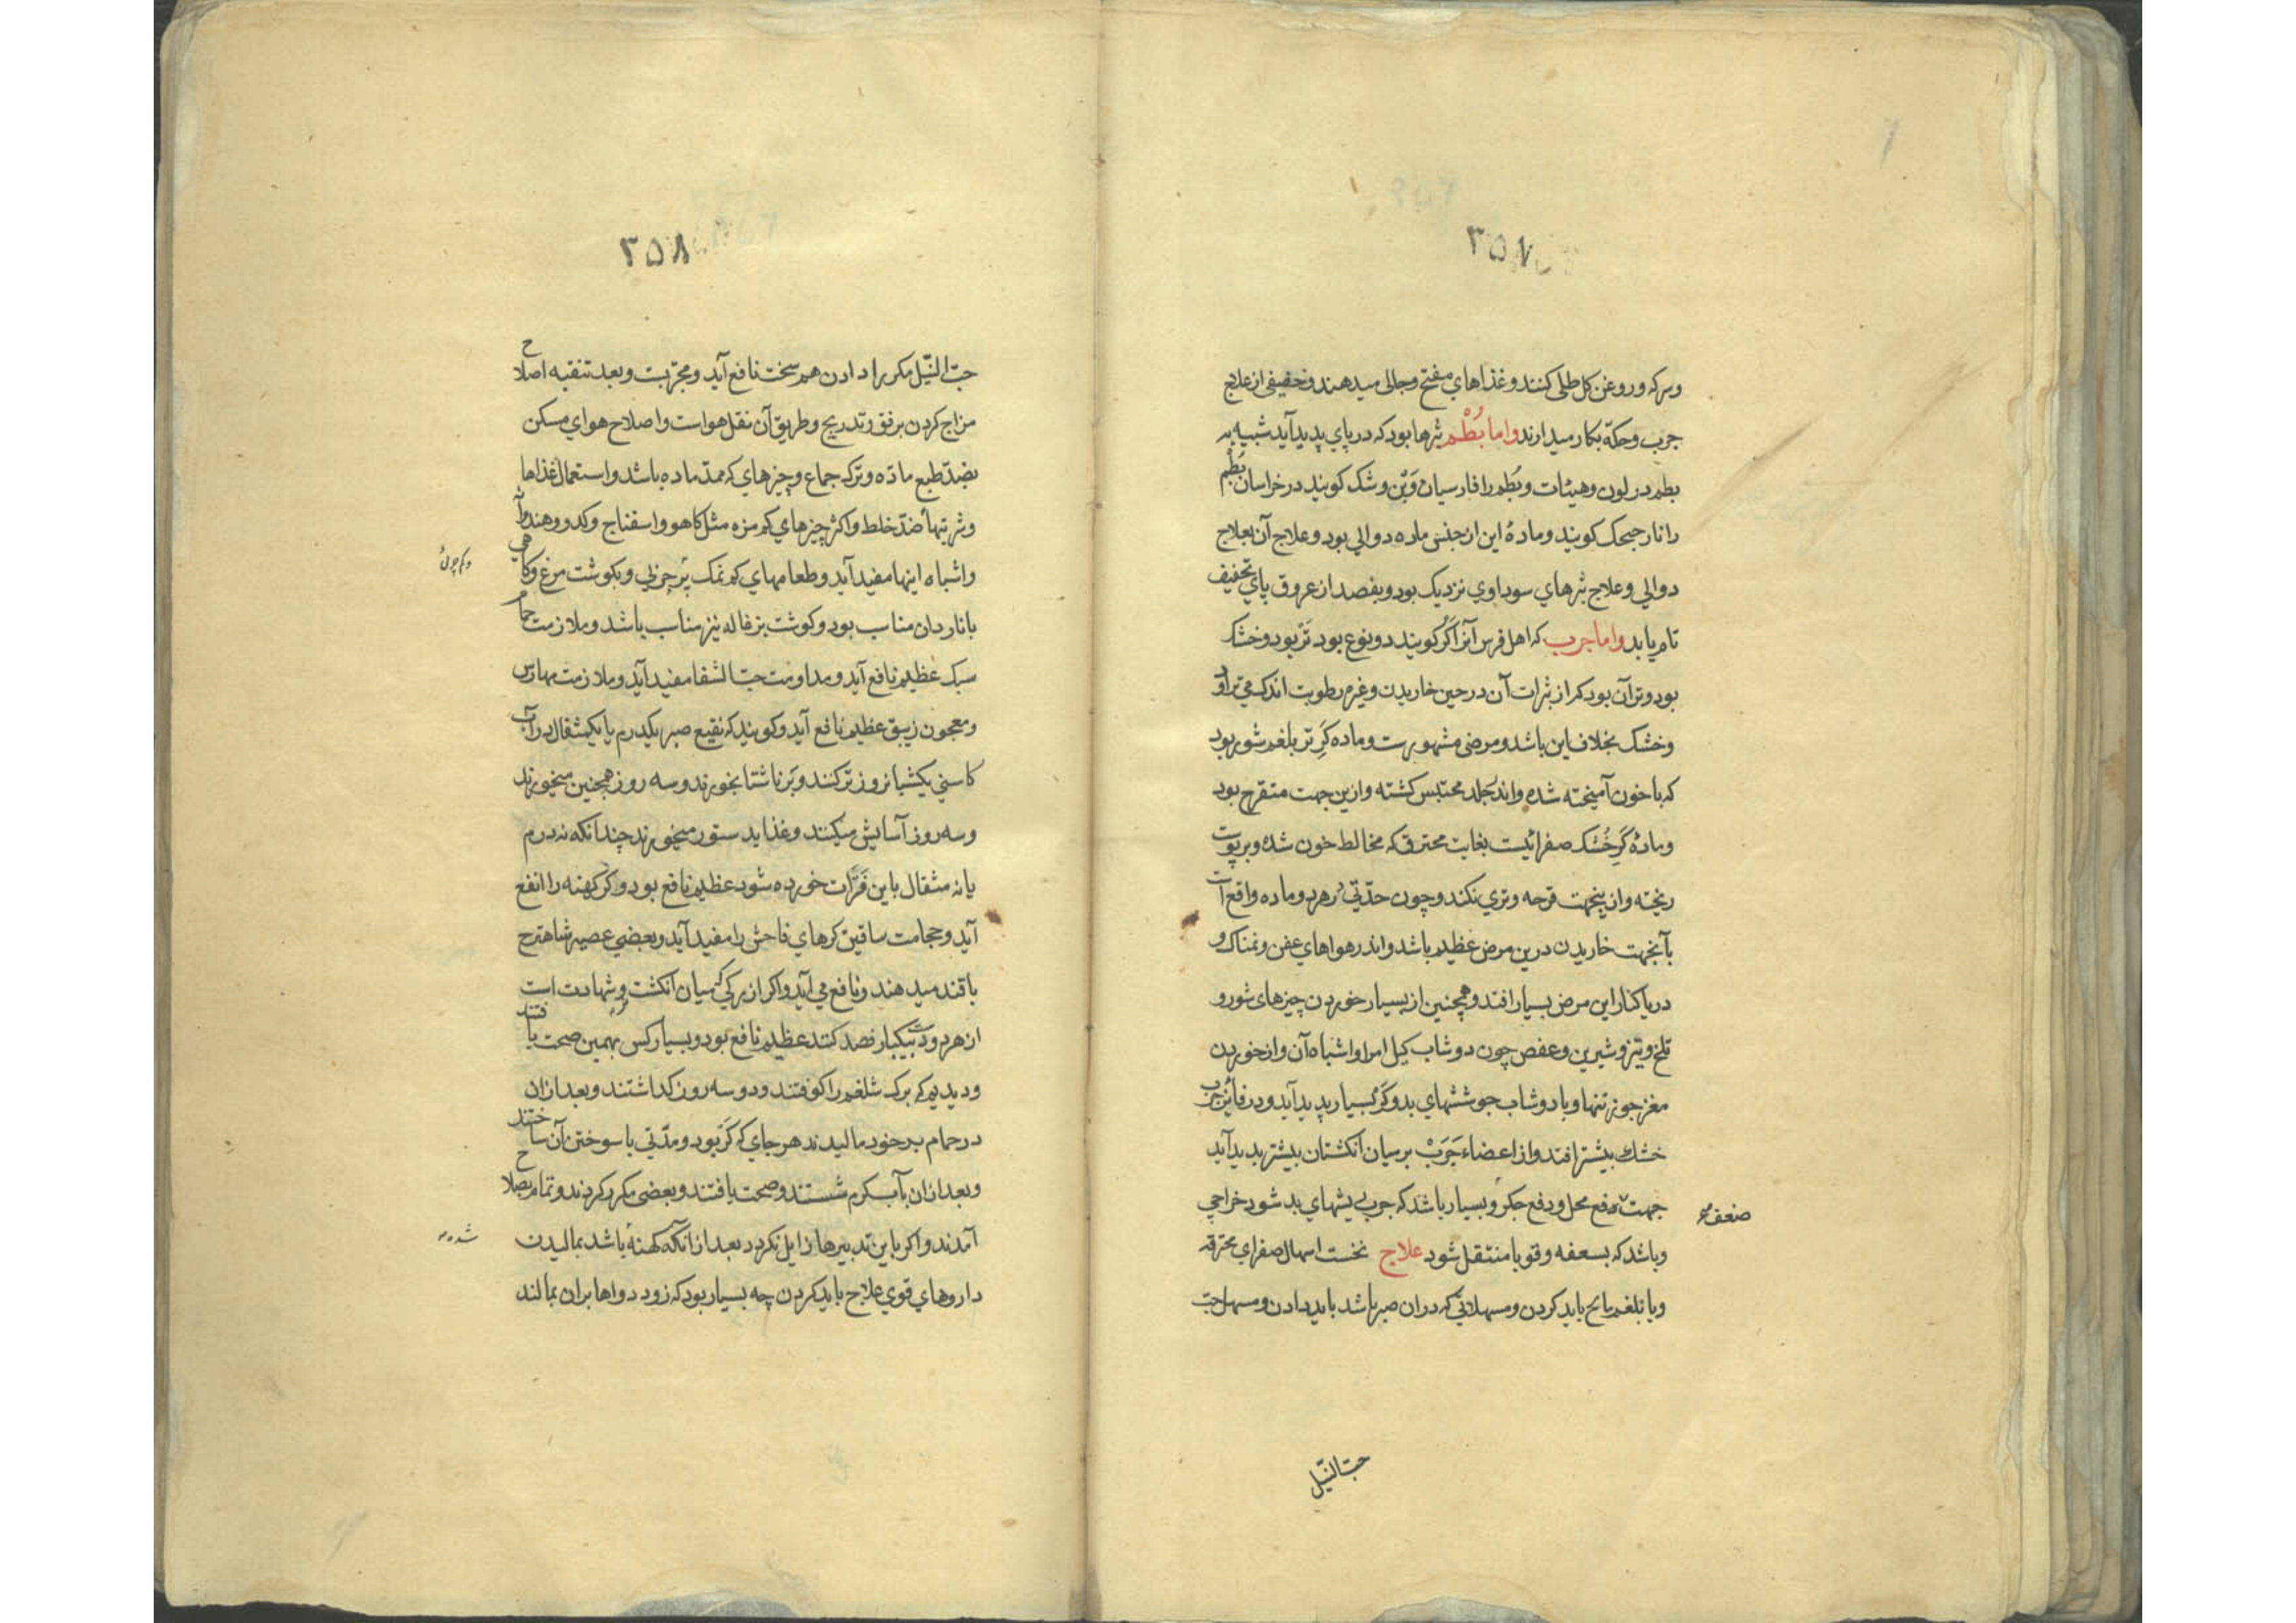 ۳۵۷
وسرکه و روغن کل طلی کنند و غذاهای مفتح و مجالی میدهند و خفیفی از علاج
جرب و حکّه بکار میدارند واما بُطْم بثرها بود که در پای پدید آید شبیه به
بطم در لون و هیئات و بُطم را فارسیان وَن و شک کویند در خراسان بُطْم
را نارجیحک کویند و مادهٔ این از جنس ماده دوالی بود و علاج آن بعلاج
دوالی و علاج بثرهای سوداوی نزدیک بود و بفصد از عروق پای تخفیف
تام یابد واما جرب که اهل فرس آنرا کَر کویند دو نوع بود تَر بود و خشک
بود و تر آن بود کمراز بثرات آن در حین خاریدن و غیره رطوبت اندک می تراود
و خشک بخلاف این باشد و مرضی مشهورست و ماده کَرِ تر بلغم شور بود
که با خون آمیخته شده و اندر جلد محتبس کشته و ازین جهت متقرح بود
و مادهٔ کَرِ خُشک صفرائیست بغایت محترق که مخالط خون شده و بر پوست
ریخته و از ینجهت قرحه و تری نکند و چون حدّتی در هر دو ماده واقع است
بآنجهت خاریدن درین مرض عظیم باشد و اندر هواهای عفن و نمناک و
دریا کنار این مرض بسیار افتد و همچنین از بسیار خوردن چیزهای شور و
تلخ و تیز و شیرین و عفص چون دوشاب کیل امرا و اشباه آن و از خوردن
مغز جوز تنها و با دوشاب جوششهای بد و کَر بسیار پدید آید و در فائن جرب
خشک بیشتر افتد و از اعضاء جَرَبْ بر میان انکشتان بیشتر پدید آید
جهت دفع محل و دفع جکر و بسیار باشد که جرب ریشهای بد شود خراجی
ضعف صح
و باشد که بسعفه و قوبا منتقل شود علاج نخست اسهال صفرای محترقه
و یا بلغم مالح باید کردن و مسهلاتی که در ان صبر باشد باید دادن و مسهل حبّ
حبّ النّیل
۳۵۸
حبّ النّیل مکرر دادن هم سخت نافع آید و مجرّبست و بعد تنقیه اصلاح
مزاج کردن برفق و تدریج و طریق آن نقل هواست و اصلاح هوای مسکن
بضدّ طبع مادّه و ترک جماع و چیزهای که ممدّ ماده باشد و استعمال غذاها
و شربتها ضدّ خلط و اکثر چیزهای کم مزه مثل کاهو و اسفناج و کدو و هندوانه
و اشباه اینها مفید آید و طعامهای کم نمک پُر چربی و بکوشت مرغ و کاهی
با ناردان مناسب بود و کوشت بزغاله نیز مناسب باشد و ملازمت حمام
سبک عظیم نافع آید و مداومت حبّ الشفا مفید آید و ملازمت مهارس
و معجون زیبق عظیم نافع آید و کویند که نقیع صبر یکدرم یا یکمثقال در آب
کاسنی یکشبانروز تر کنند و بَر ناشتا بخورند و سه روز همچنین میخورند
و سه روز آسایش میکنند و غذا بد ستور میخورند چندانکه نه درم
یا نه مثقال باین مَرّات خورده شود عظیم نافع بود و کر کهنه را انفع
آید و حجامت ساقین کرهای فاحش را مفید آید و بعضی عصیر شاهترج
با قند میدهند و نافع می آید و اکر از برکی که میان انکشت و شهادت است
از هر دو دست بیکبار فصد کنند عظیم نافع بود و بسیار کس بهمین صحت یافتند
و دیدیم که برک شلغم را کوفتند و دو سه روز کداشتند و بعد ازان
در حمام بر خود مالیدند هر جای که کَر بود و مدّتی با سوختن آن ساختند
و بعد ازان بآب کرم شستند و صحت یافتند و بعضی مکرر کردند و تمام بصلاح
آمدند و اکر باین تدبیرها زایل نکردد بعد از انکه کهنه باشد بمالیدن
شده
داروهای قوی علاج باید کردن چه بسیار بود که زود دواها بران بمالند